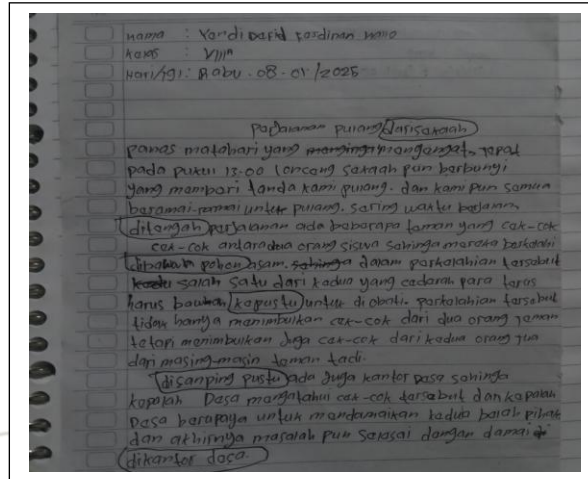 nama : Yandi Dapid Ferdinan
Kelas : VIIIA
Hari/tgl : Rabu - 08 - 01/2025
perjalanan pulang darisekolah
panas matahari yang mengangat, tepat
pada pukul 13.00 lonceng sekolah pun berbunyi
yang memberi tanda kami pulang. dan kami pun semua
beramai-ramai untuk pulang. Sering waktu berjalan
ditengah perjalanan ada beberapa teman yang cek-cok
cek-cok antara dua orang siswa sehingga mereka berkelahi
dibawah pohon asam. sehinga dalam perkelahian tersebut
salah satu dari kedua yang cedarah para terus
harus bawah kepustu untuk diobati. perkelahian tersebut
tidak hanya menimbulkan cek-cok dari dua orang teman
tetapi menimbulkan juga cek-cek dari kedua orang tua
dari masing-masin teman tadi.
disamping pustu ada juga kantor Desa sehinga
kepalah Desa mengetahui cek-cok tersebut dan kepalah
Desa berupaya untuk mendamaikan kedua belah pihak
dan akhirnya masalah pun selesai dengan damai di
dikantor desa.